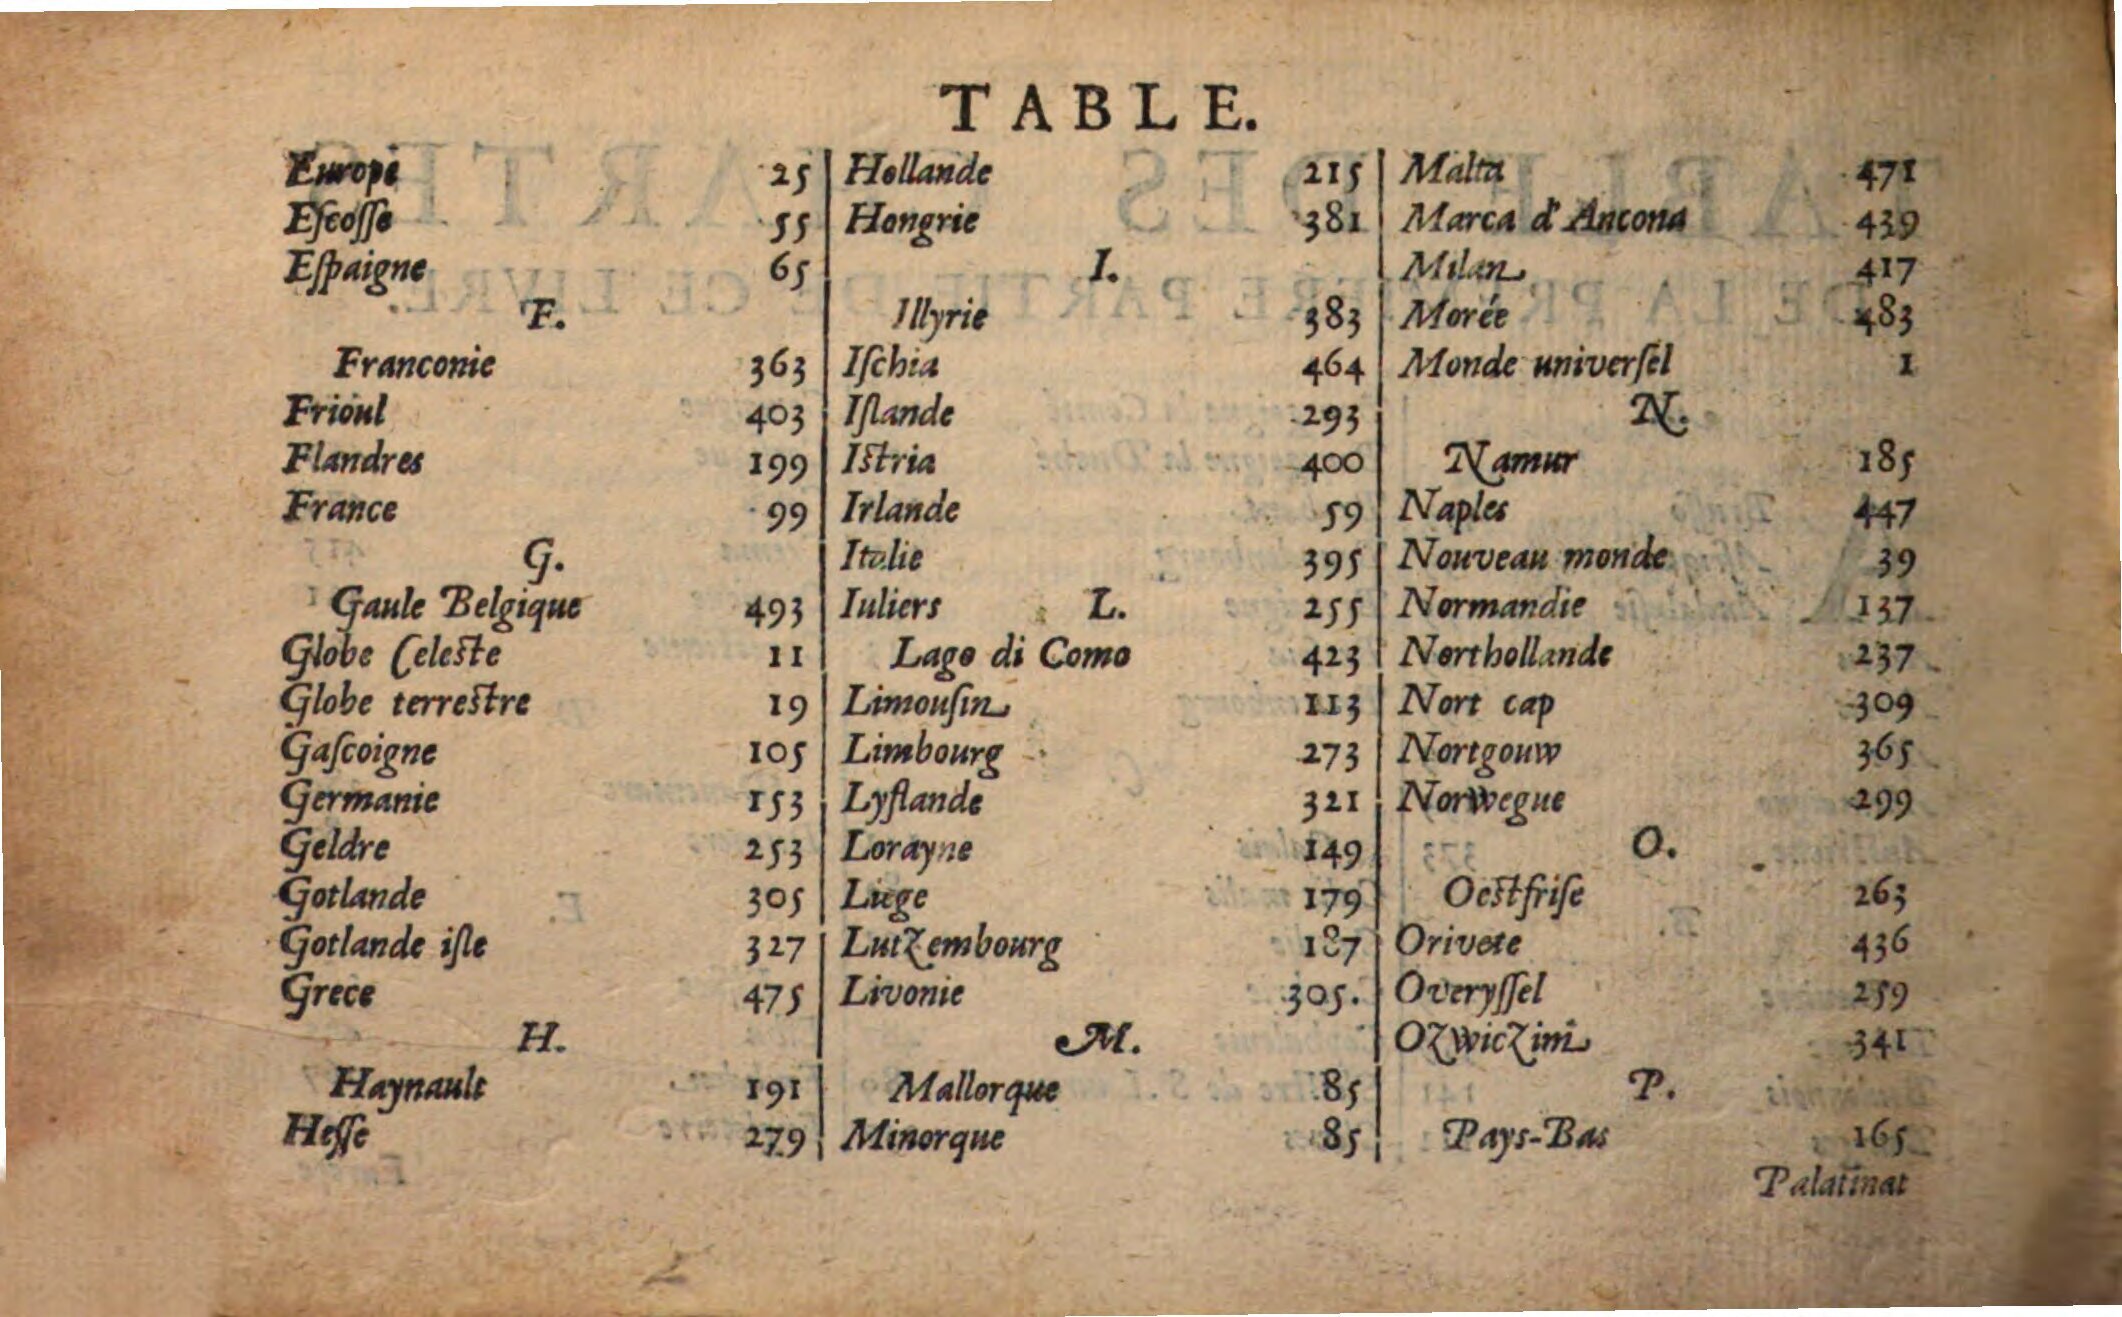 TABLE.
Europe 25
Eſcoſſe 55
Eſpaigne 65
F.
Franconie 363
Frioul 403
Flandres 199
France 99
G.
Gaule Belgique 493
Globe Celeste 11
Globe terrestre 19
Gaſcoigne 105
Germanie 153
Geldre 253
Gotlande 305
Gotlande iſle 327
Grece 475
H.
Haynault 191
Heſſe 279
Hollande 215
Hongrie 381
I.
Illyrie 383
Iſchia 464
Iſlande 293
Istria 400
Irlande 59
Italie 395
Iuliers 255
L.
Lago di Como 423
Limouſin 113
Limbourg 273
Lyflande 321
Lorayne 149
Liege 179
Lutzembourg 187
Livonie 305.
M.
Mallorque 85
Minorque 85
Malta 471
Marca d'Ancona 439
Milan 417
Morée 483
Monde univerſel 1
N.
Namur 185
Naples 447
Nouveau monde 39
Normandie 137
Northollande 237
Nort cap 309
Nortgouw 365
Norwegue 299
O.
Oestfriſe 263
Orivete 436
Overyſſel 259
Ozwiczim 341
P.
Pays-Bas 165
Palatinat